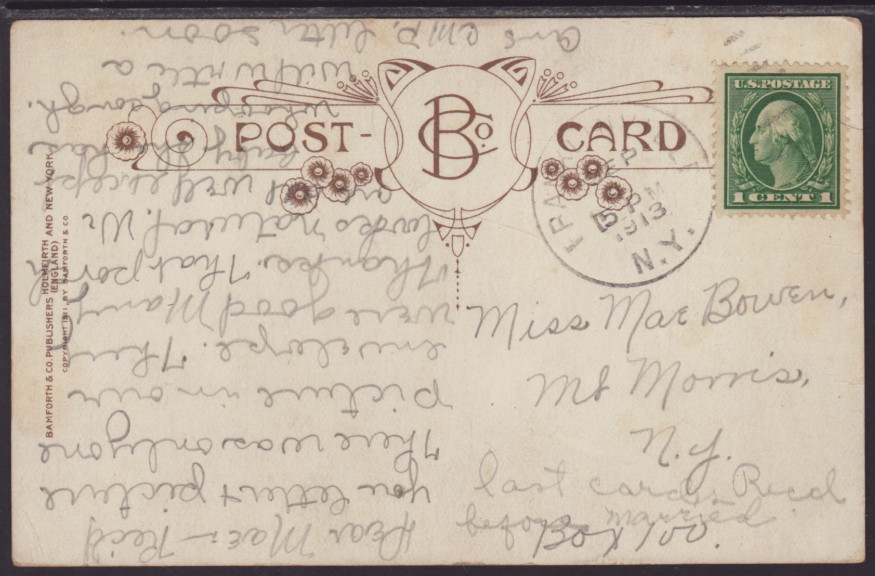 POST-
B Co.
CARD
U.S. POSTAGE
1 CENT 1
SEP
5 PM
1913
N.Y.
BAMFORTH & CO. PUBLISHERS HOLMFIRTH AND NEW YORK
(ENGLAND)
COPYRIGHT 1911 BY BAMFORTH & CO.
Miss Mae Bowen,
Mt Morris,
N.Y.
Box 100.
last card Recd
before married
Dear Mae:- Rec'd
you letter & picture
There was only one
picture in our
envelope. They
were good Many
Thanks. That pony
looks natural. We
are well except
baby has
whooping cough.
will write a
letter soon.